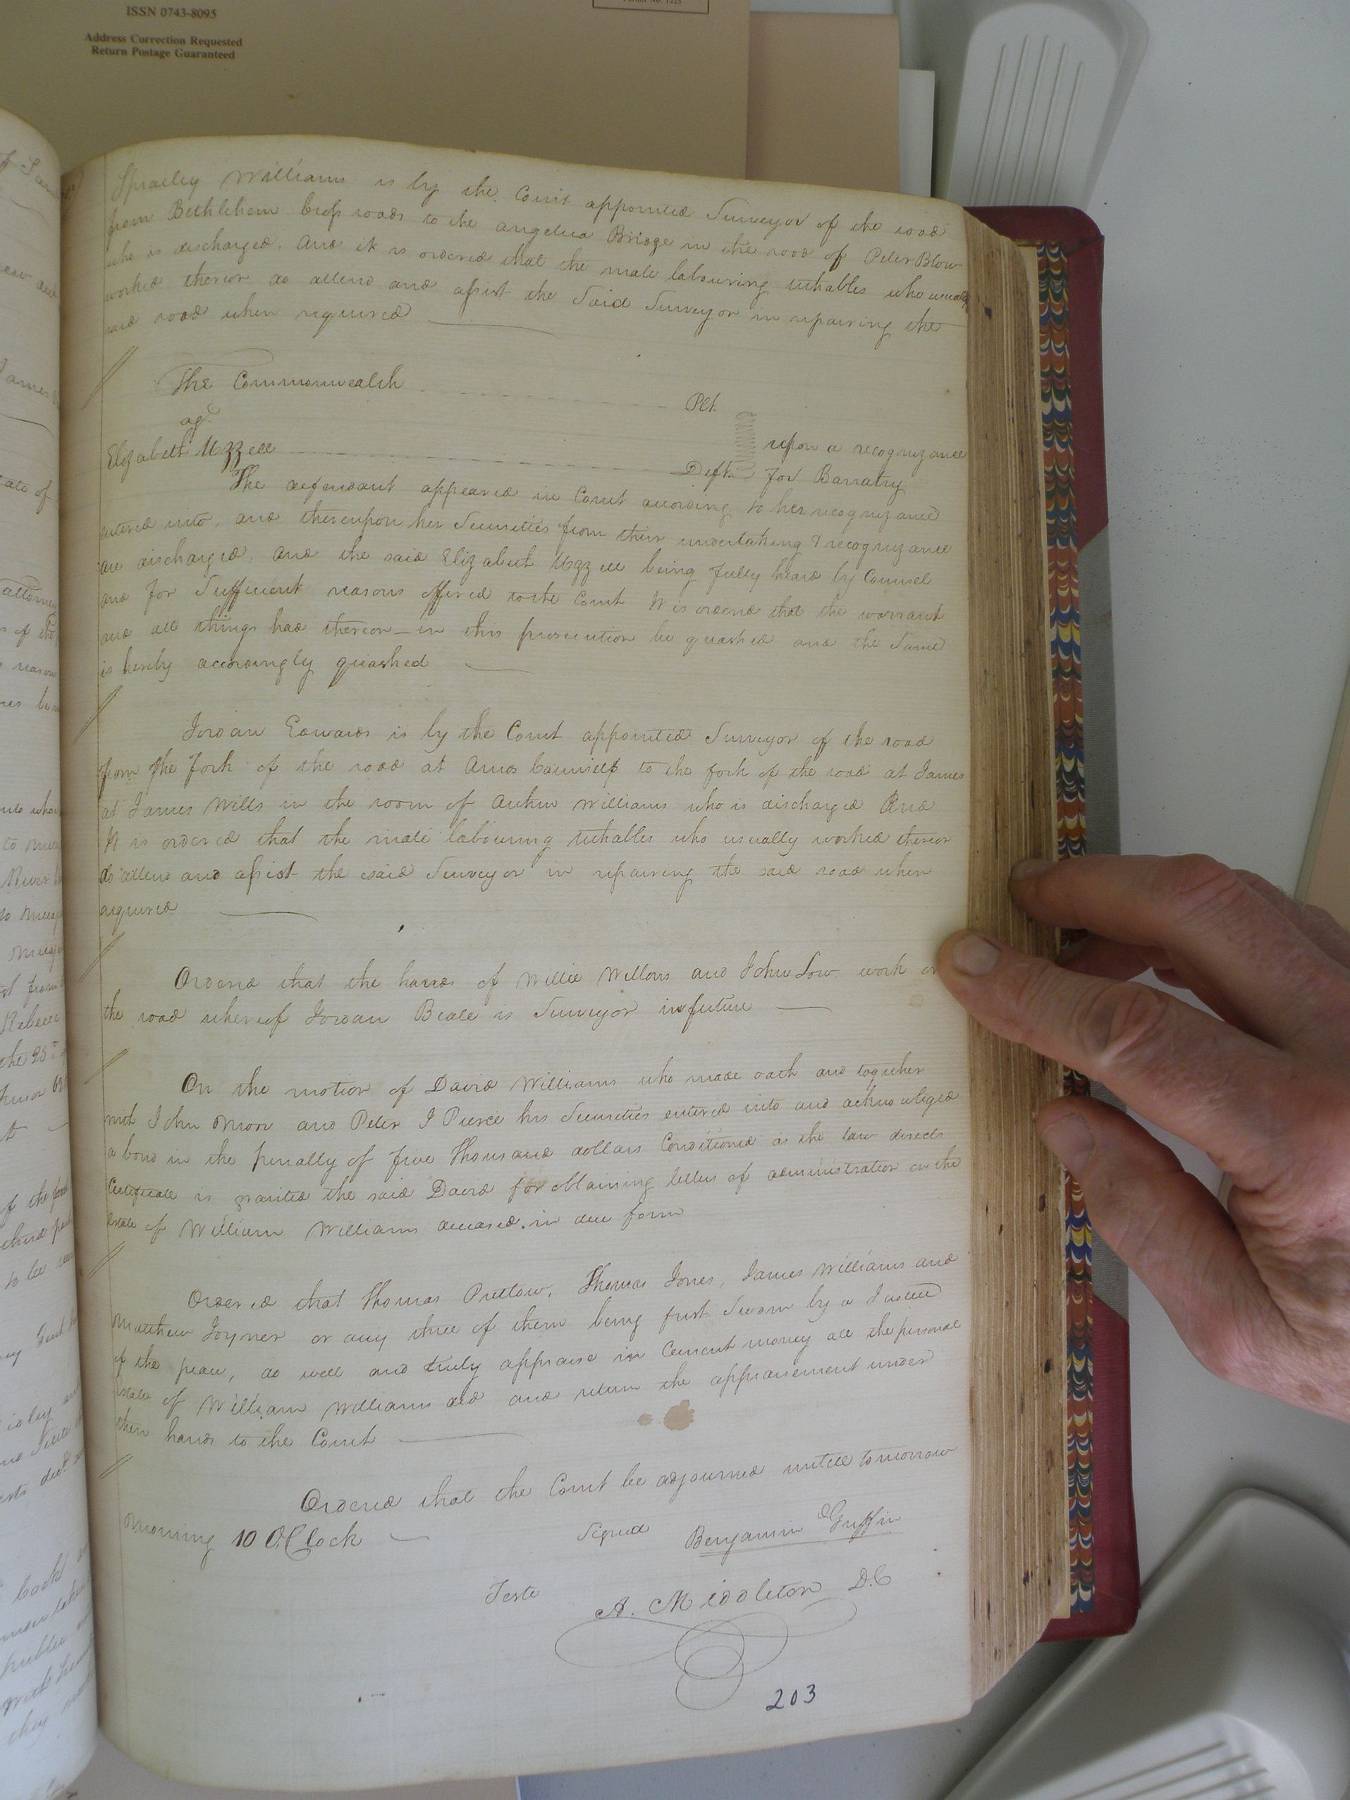 ISSN 0743-8095
Address Correction Requested
Return Postage Guaranteed
Spratley Williams is by the Court appointed Surveyor of the road
from Bethlehem Cross roads to the angelica Bridge in the room of Peter Blow
who is discharged. And it is ordered that the male labouring tithables who usually
worked thereon do attend and assist the Said Surveyor in repairing the
said road when required
The Commonwealth Plt.
agt
Elizabeth Uzzell Deft. upon a recognizance
for Barratry
The defendant appeared in Court according to her recognizance
entered into, and thereupon her Securities from their undertaking & recognizance
are discharged. And the said Elizabeth Uzzell being fully heard by Counsel
and for Sufficient reasons offered to the Court It is ordered that the warrant
and all things had thereon in this prosecution be quashed and the Same
is hereby accordingly quashed
Jordan Edwards is by the Court appointed Surveyor of the road
from the fork of the road at Amos Councills to the fork of the road at James
at James Wills in the room of Williams who is discharged And
It is ordered that the male labouring tithables who usually worked thereon
do attend and assist the said Surveyor in repairing the said road when
required
Ordered that the hands of Willie Willons and John Low work on
the road whereof Jordan Beale is Surveyor in future
On the motion of David Williams who made oath and together
with John Moor and Peter J Pierce his Securities entered into and acknowledged
a bond in the penalty of five Thousand dollars Conditioned as the law directs
Certificate is granted the said David for obtaining letters of administration on the
Estate of William Williams deceased. in due form
Ordered that Thomas Pretlow, Thomas Jones, James Williams and
Matthew Joyner or any three of them being first Sworn by a Justice
of the peace, do well and truly appraise in Current money all the personal
estate of William Williams decd and return the appraisement under
their hands to the Court
Ordered that the Court be adjourned untill tomorrow
Morning 10 OClock
Signed Benjamin Griffin
Teste A. Middleton D.C
203